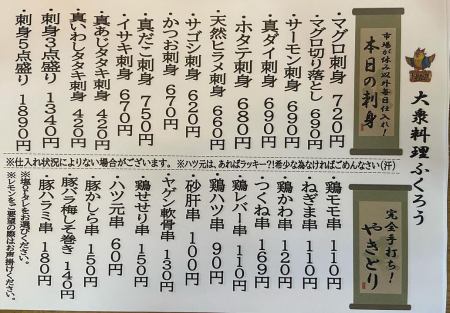 大衆料理ふくろう
市場が休み以外毎日仕入れ！
本日の刺身
・マグロ刺身 720円
・マグロ切り落とし 690円
・サーモン刺身 690円
・真ダイ刺身 690円
・ホタテ刺身 680円
・天然ヒラメ刺身 660円
・サゴシ刺身 620円
・かつお刺身 670円
・真だこ刺身 750円
・イサキ刺身 670円
・真あじタタキ刺身 420円
・真いわしタタキ刺身 420円
・刺身3点盛り 1340円
・刺身5点盛り 1890円
※仕入れ状況によりない場合がございます。※ハツ元は、あればラッキー?!希少な為なければごめんなさい(汗)
完全手打ち！
やきとり
・鶏モモ串 110円
・ねぎま串 110円
・鶏かわ串 120円
・つくね串 169円
・鶏レバー串 110円
・鶏ハツ串 90円
・砂肝串 100円
・ヤゲン軟骨串 130円
・鶏せせり串 150円
・ハツ元串 60円
・豚かしら串 150円
・豚バラ梅しそ巻き 140円
・豚ハラミ串 180円
※塩Orタレをお選びください。
※レモンをご要望の際はお声掛けください。